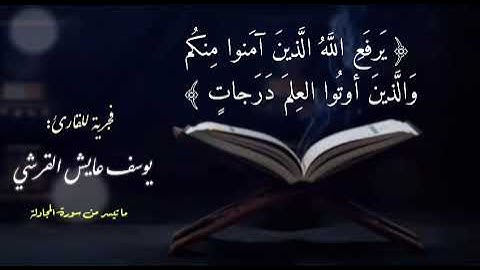 ﴿ يَرفَعِ اللَّهُ الَّذينَ آمَنوا مِنكُم
وَالَّذينَ أوتُوا العِلمَ دَرَجاتٍ ﴾
فجرية للقارئ:
يوسف عايش القرشي
ماتيسر من سورة المجادلة